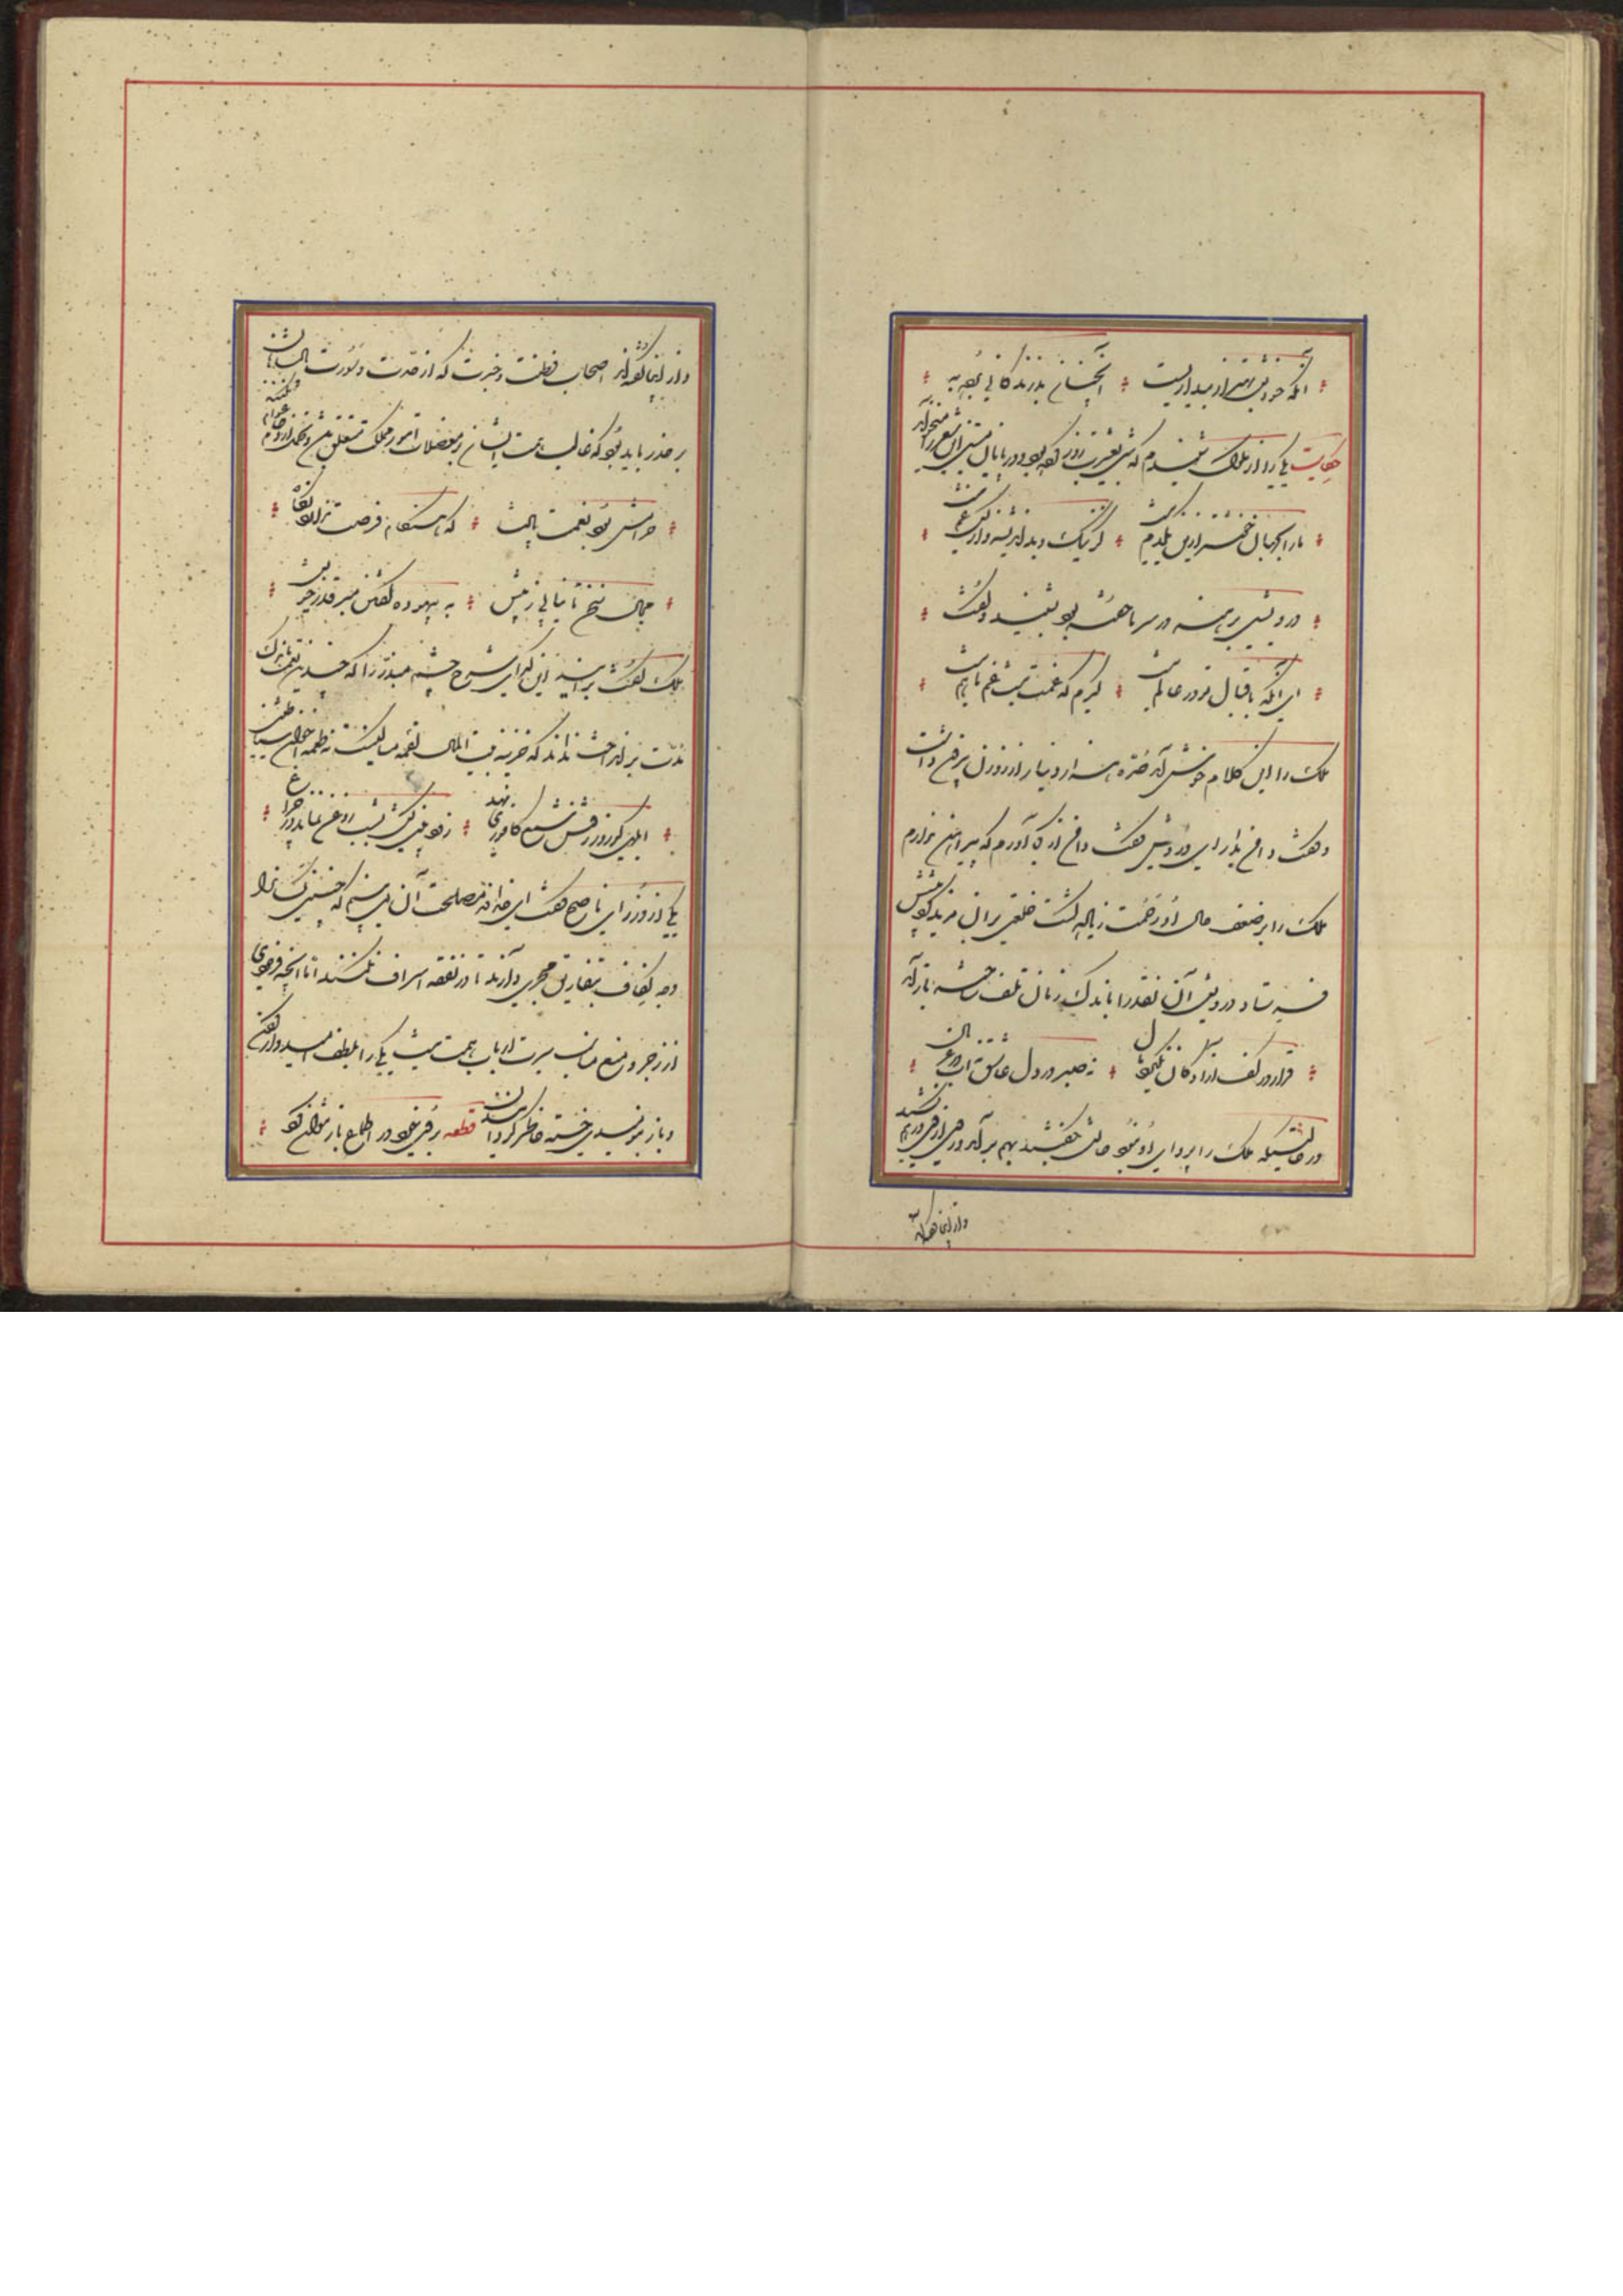 آنکه خوابش بهتر از بیداریست آنچنان بد زندگانی مرده به
حکایت یکی را از ملوک شنیدم که شبی بعشرت روز کرده بود و در پایان مستی این شعر را میخواند
ما را بجهان خوشتر ازین یکدم نیست کز نیک و بد اندیشه و از کس غم نیست
درویشی برهنه در سرما خفته بود بشنید و گفت
ای آنکه باقبال تو در عالم نیست گیرم که غمت نیست غم ما هم نیست
ملک را این کلام خوش آمد صره هزار دینار از روزن بیرون داشت
و گفت دامن بدار ای درویش گفت دامن از کجا آورم که پیراهن ندارم
ملک را بر ضعف حال او رحمت زیاده گشت خلعتی بران مزید کرد و پیشش
فرستاد درویش آن نقد را باندک زمان تلف ساخته باز آمد
قرار در کف آزادگان نگیرد مال نه صبر در دل عاشق نه آب در غربال
در حالتیکه ملک را پروای او نبود حالش بگفتند بهم برآمد و روی ازو درهم کشید
و از اینجا گفته‌اند
و از اینجا گفته‌اند اصحاب فطنت و خبرت که از حدت و سورت پادشاهان
بر حذر باید بود که غالب همت ایشان بمعضلات امور مملکت متعلق باشد و تحمل ازدحام عوام نکنند
حرامش بود نعمت پادشاه که هنگام فرصت ندارد نگاه
مجال سخن تا نیابی ز پیش به بیهوده گفتن مبر قدر خویش
ملک گفت برانید این گدای شوخ چشم مبذر را که چندین نعمت باندک
مدت برانداخت نداند که خزینه بیت المال لقمه مساکینست نه طعمه اخوان شیاطین
ابلهی کو روز روشن شمع کافوری نهد زود بینی کش بشب روغن نماند در چراغ
یکی از وزرای ناصح گفت ای خداوند مصلحت آن می‌بینم که چنین کسان را
وجه کفاف بتفاریق مجری دارند تا در نفقه اسراف نکنند اما آنچه فرمودی
از زجر و منع مناسب سیرت ارباب همت نیست یکی را بلطف امیدوار کردن
و باز بنومیدی خسته خاطر گردانیدن قطعه بروی خود در اطماع باز نتوان کرد